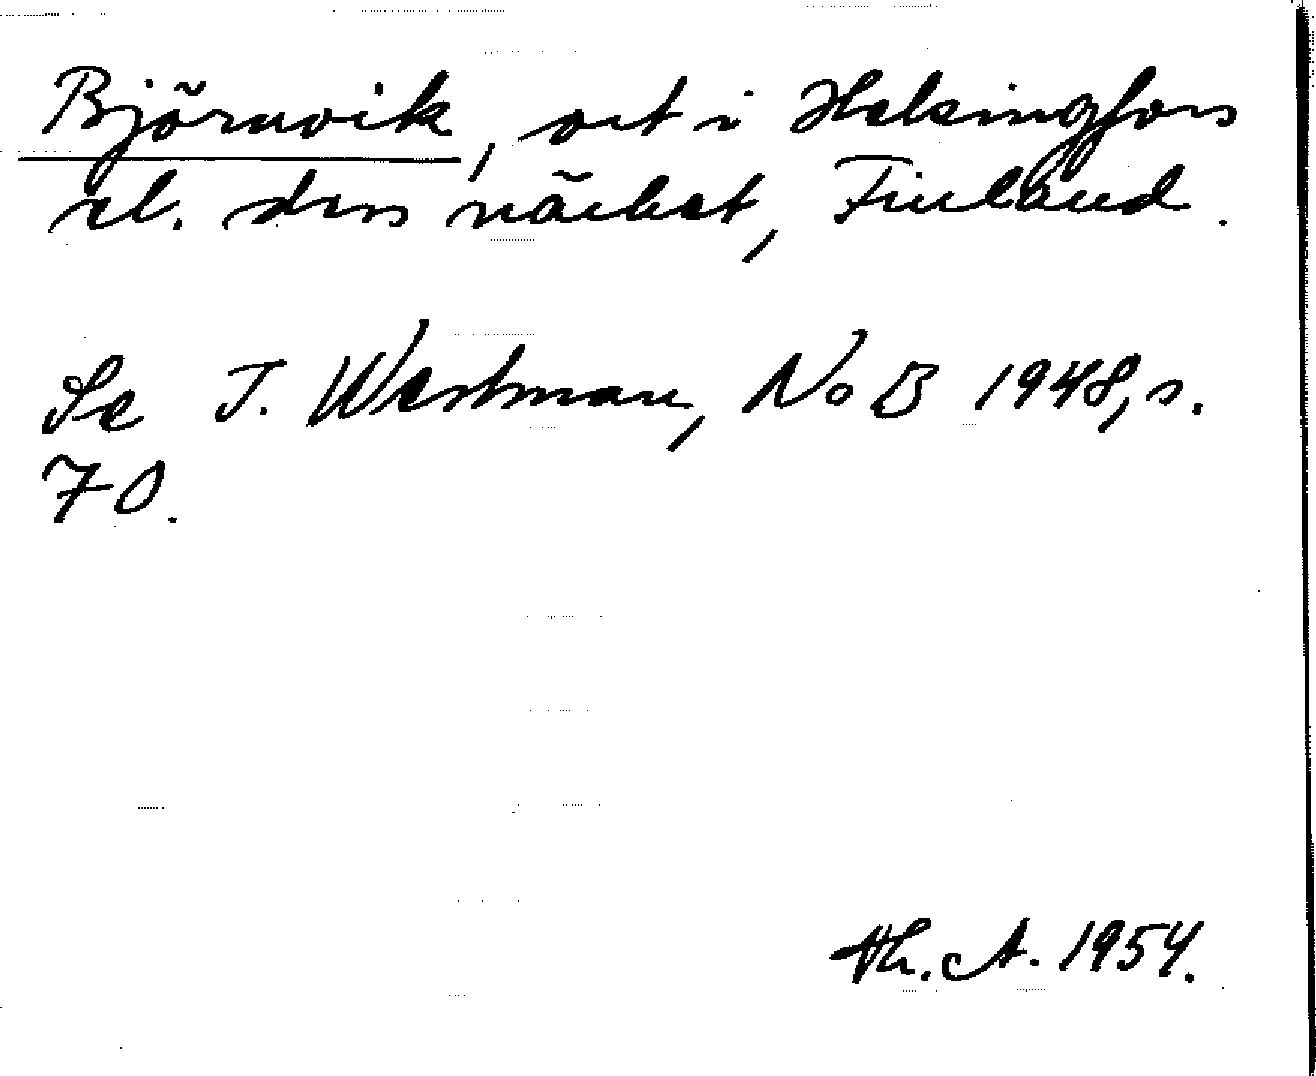 Björnvik, ort i Helsingfors
el. dess närhet, Finland.
Se T. Westman, NoB 1948, s.
70.
Th. A. 1954.